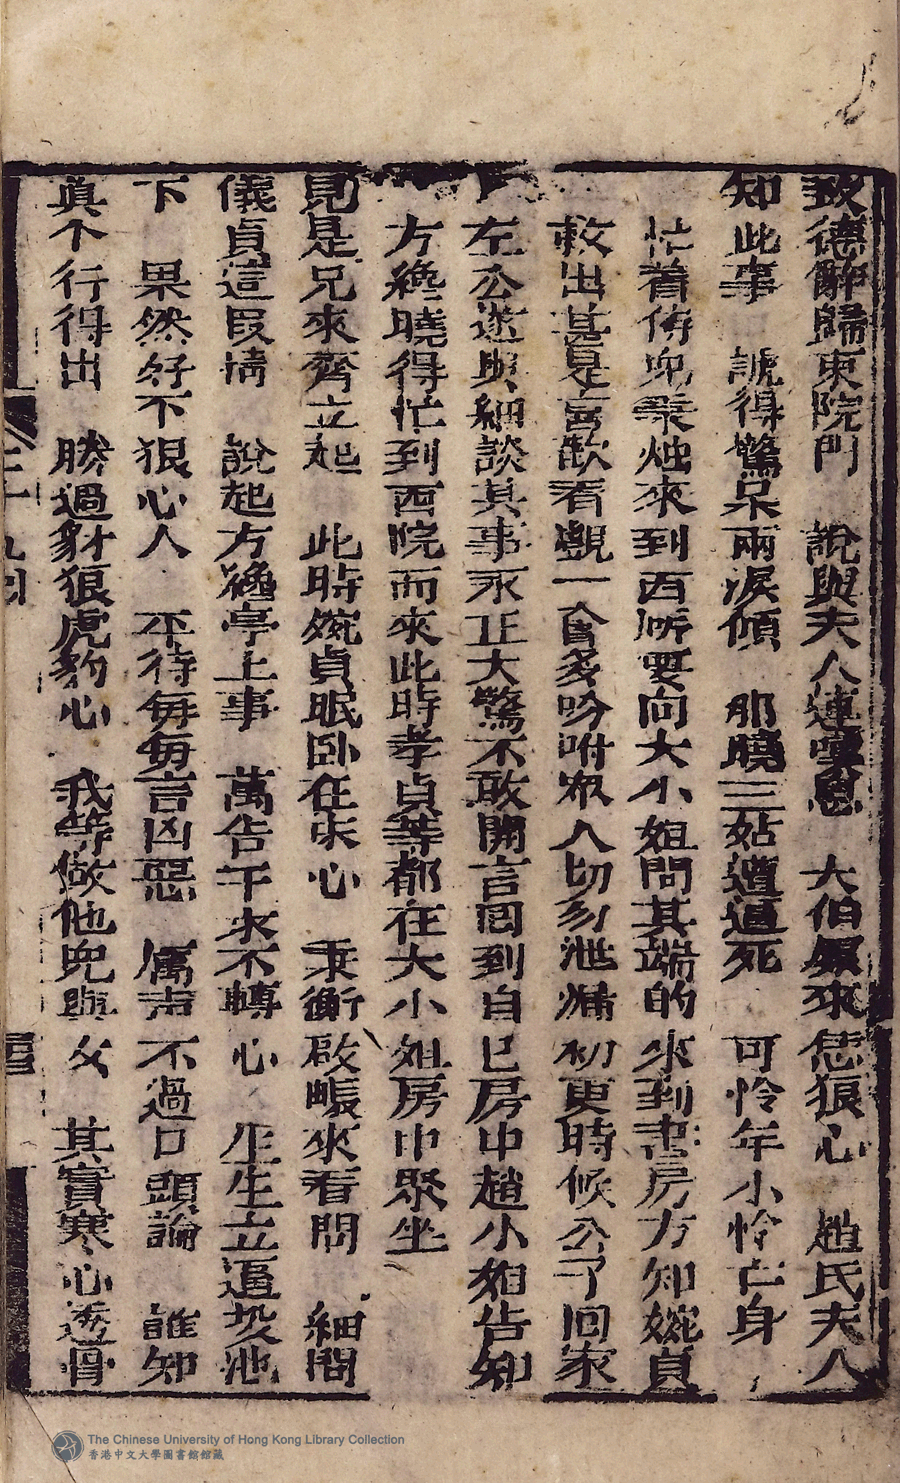 致德辭歸東院門　說與夫人連嘆息　大伯原來恁狠心　趙氏夫人
知此事　諕得驚呆兩淚傾　那曉三姑遭逼死　可怜年小怜亡身
忙着侍兒秉燭來到西所要向大小姐問其端的來到書房方知婉貞
救出甚是喜歡看覷一會多吩咐衆人切勿泄漏初更時候公子回家
左公遂與細談其事永正大驚不敢開言囘到自已房中趙小姐告知
方纔曉得忙到西院而來此時孝貞等都在大小姐房中聚坐
見是兄來齊立起　此時婉貞眠卧在床心　秉衡啟帳來看問　細問
儀貞這叚情　說起方纔亭上事　萬告千求不轉心　生生立逼投池
下　果然好不狠心人　平待毎毎言凶惡　厲声不過口頭論　誰知
真个行得出　勝過豺狼虎豹心　我等做他兒與女　其實寒心透骨
The Chinese University of Hong Kong Library Collection
香港中文大學圖書館館藏